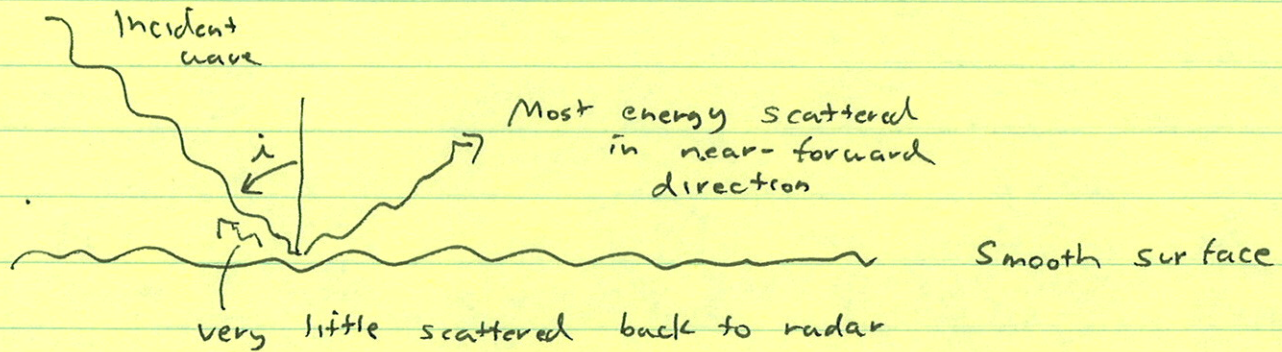 Incident
wave
Most energy scattered
in near-forward
direction
i
Smooth surface
very little scattered back to radar